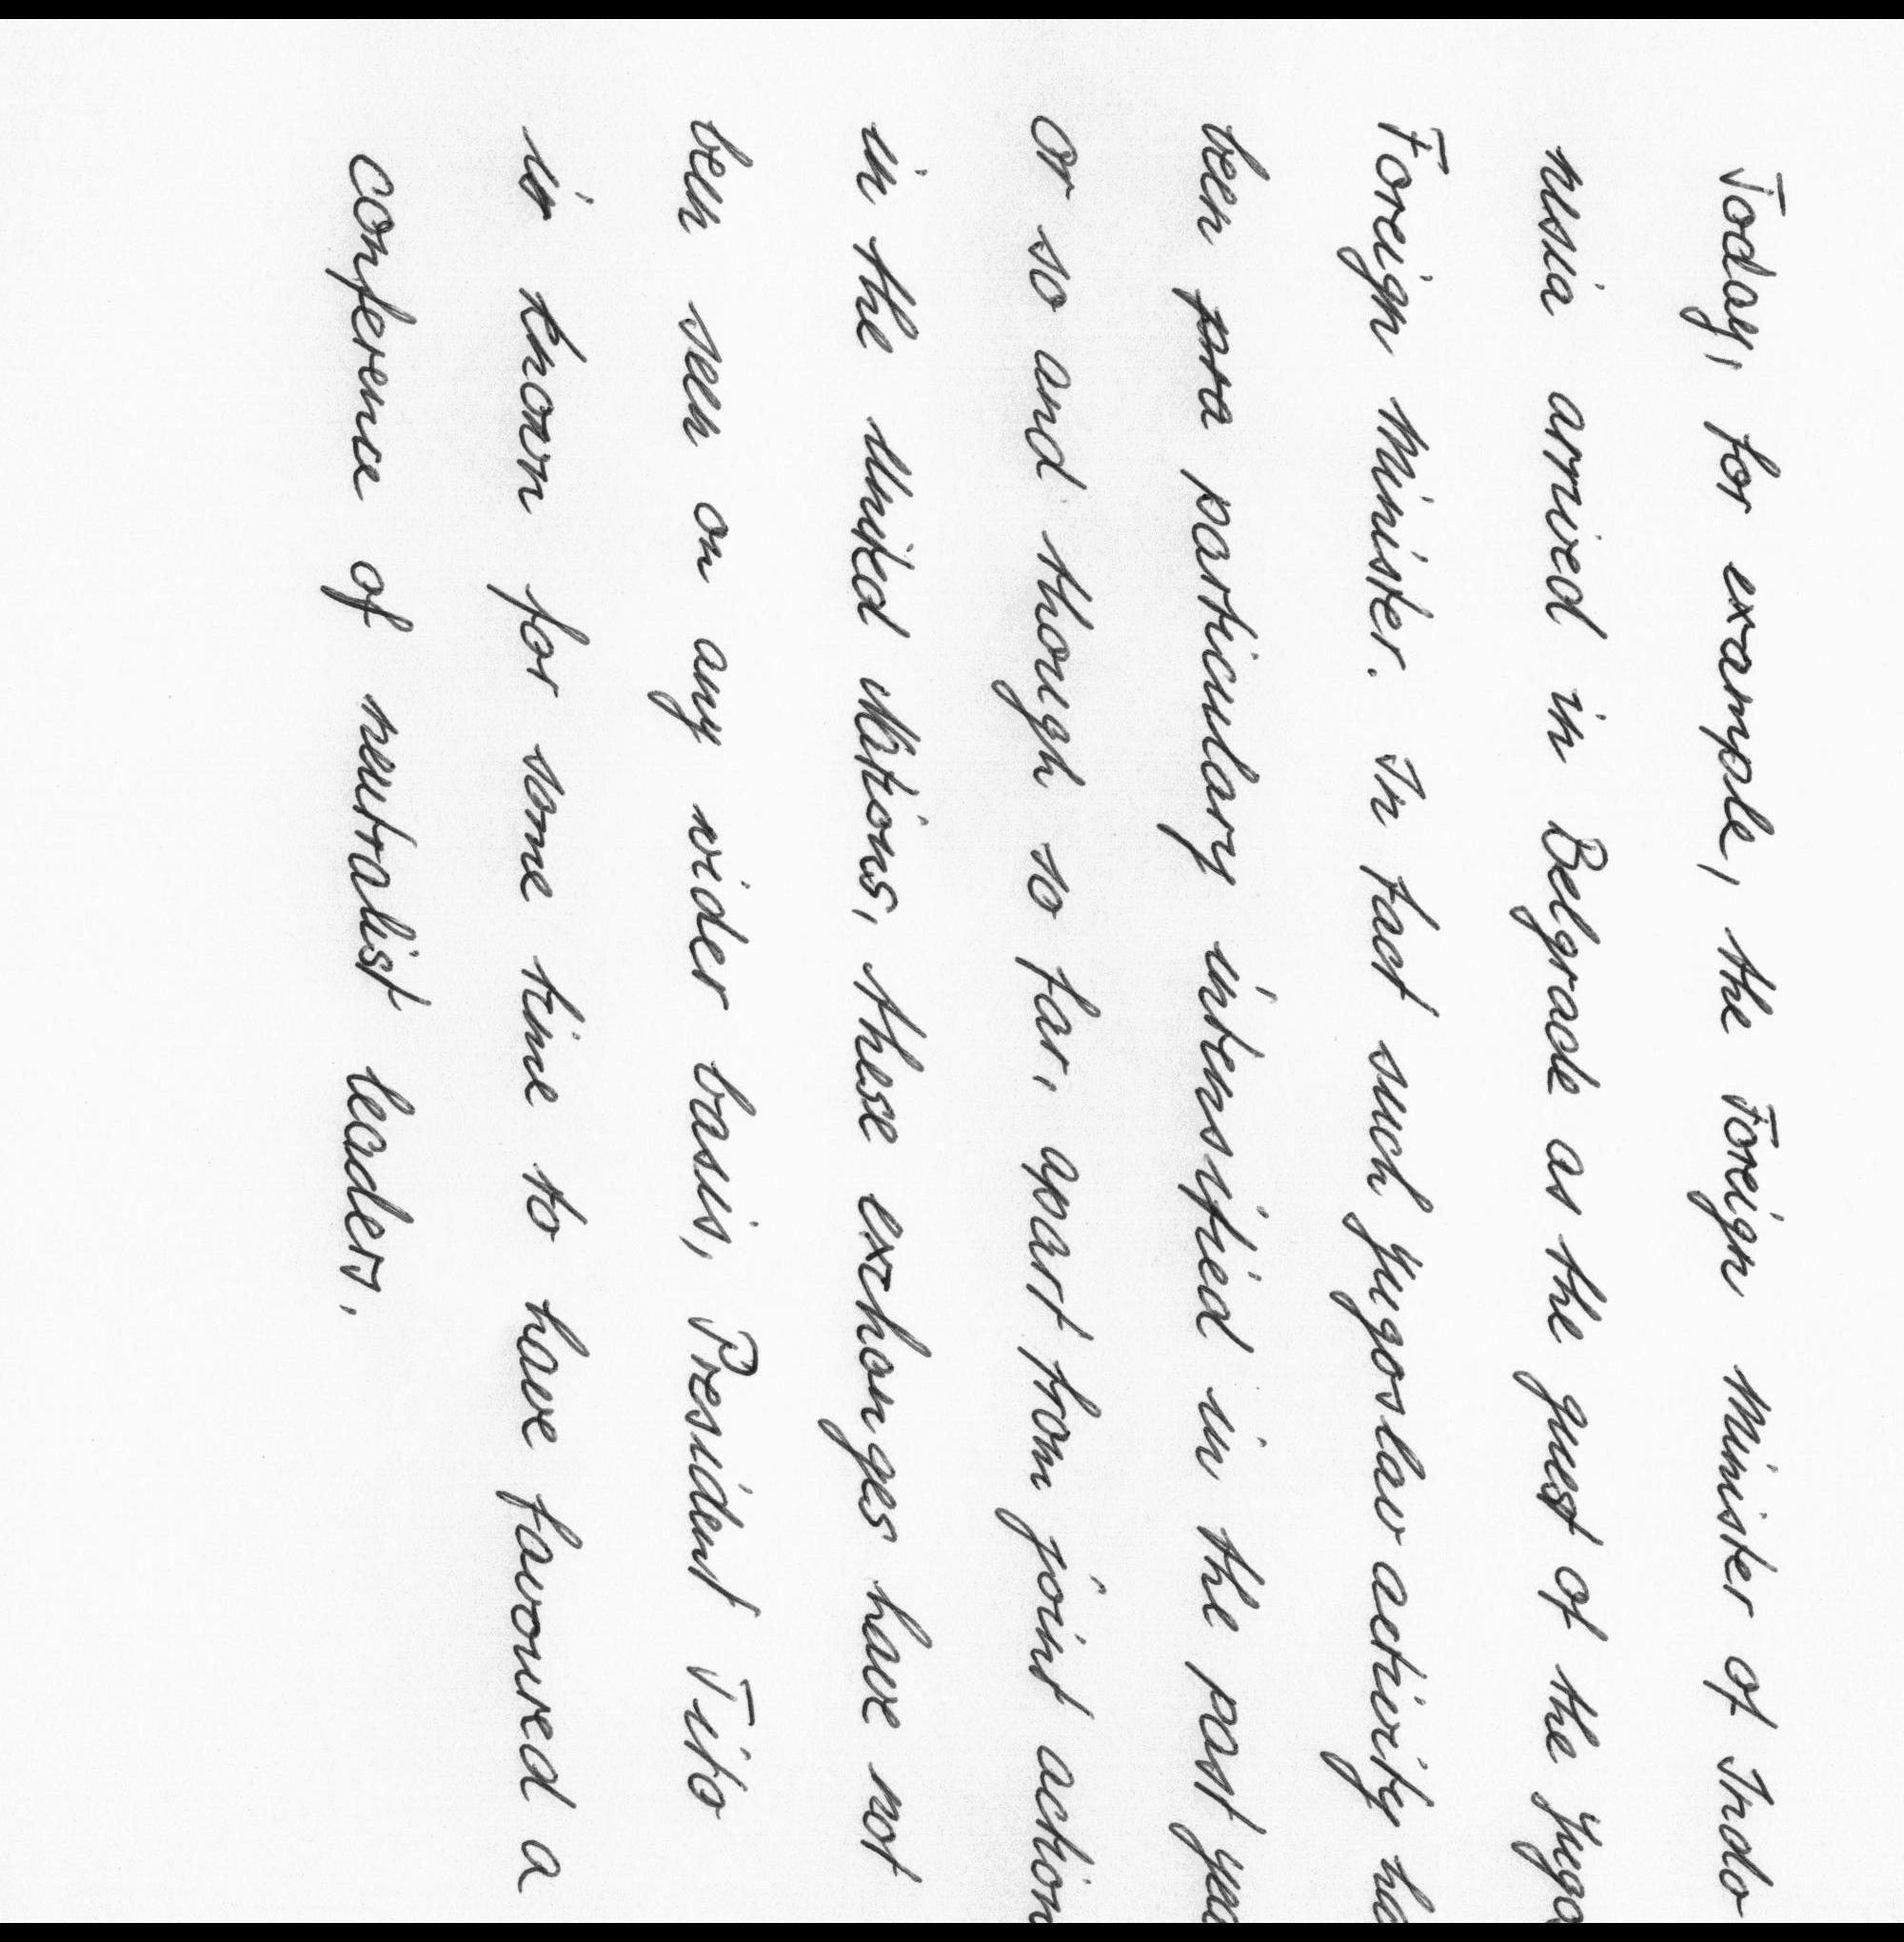 Today, for example, the Foreign Minister of Indo
nesia arrived in Belgrade as the guest of the Yugo
Foreign Minister. In fact such Yugoslav activity ha
been particulary intensified in the past yea
or so and though so far, apart from joint action
in the United Nations, these exchanges have not
been seen on any wider basis, President Tito
is known for some time to have favoured a
conference of neutralist leaders.